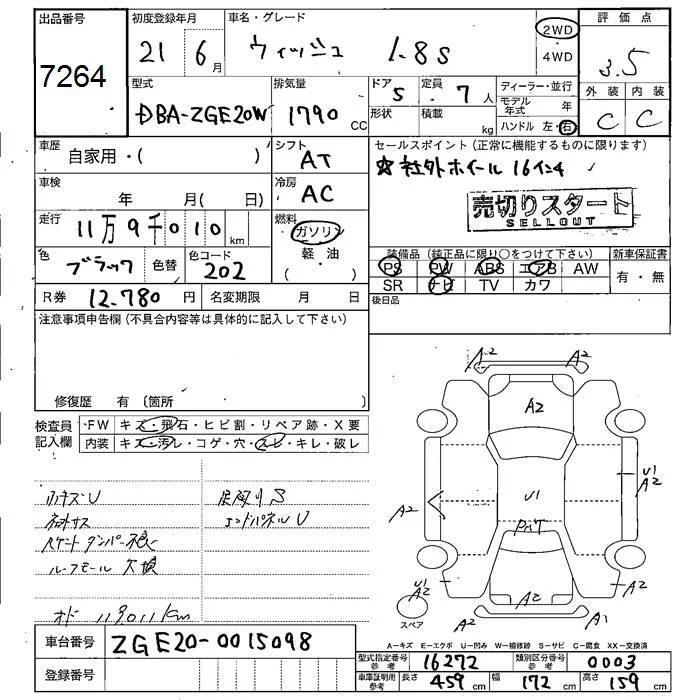 出品番号 7264
初度登録年月 21 6月
車名・グレード ウィッシュ 1.8S
2WD
4WD
評価点 3.5
型式 DBA-ZGE20W
排気量 1790 CC
ドア 5
形状
定員 7人
積載 kg
ディーラー・並行
モデル年式 年
ハンドル 左・右
外装 C
内装 C
車歴 自家用・( )
シフト AT
セールスポイント(正常に機能するものに限ります)
☆社外ホイール 16インチ
売切りスタート
SELLOUT
車検 年 月( 日)
冷房 AC
走行 11万9千010km
燃料 ガソリン
軽・油
( )
色 ブラック
色替
色コード 202
装備品(純正品に限り○をつけて下さい)
PS PW ABS エアB AW
SR ナビ TV カワ
新車保証書
有・無
R券 12.780円
名変期限 月 日
後日品
注意事項申告欄(不具合内容等は具体的に記入して下さい)
修復歴 有(箇所 )
検査員記入欄
FW キズ・飛石・ヒビ割・リペア跡・X要
内装 キズ・汚レ・コゲ・穴・スレ・キレ・破レ
ルーフモール 欠損
エンドパネル U
オド 119011km
A2 A2
A2
U1
A2
U1
A2
U1
A2
A2
A2
A1
スペア
A-キズ E-エクボ U-凹み W-補修跡 S-サビ C-腐食 XX-交換済
車台番号 ZGE20-0015098
登録番号
型式指定番号参考 16272
類別区分番号参考 0003
車庫証明用参考 長さ 459cm 幅 172cm 高さ 159cm